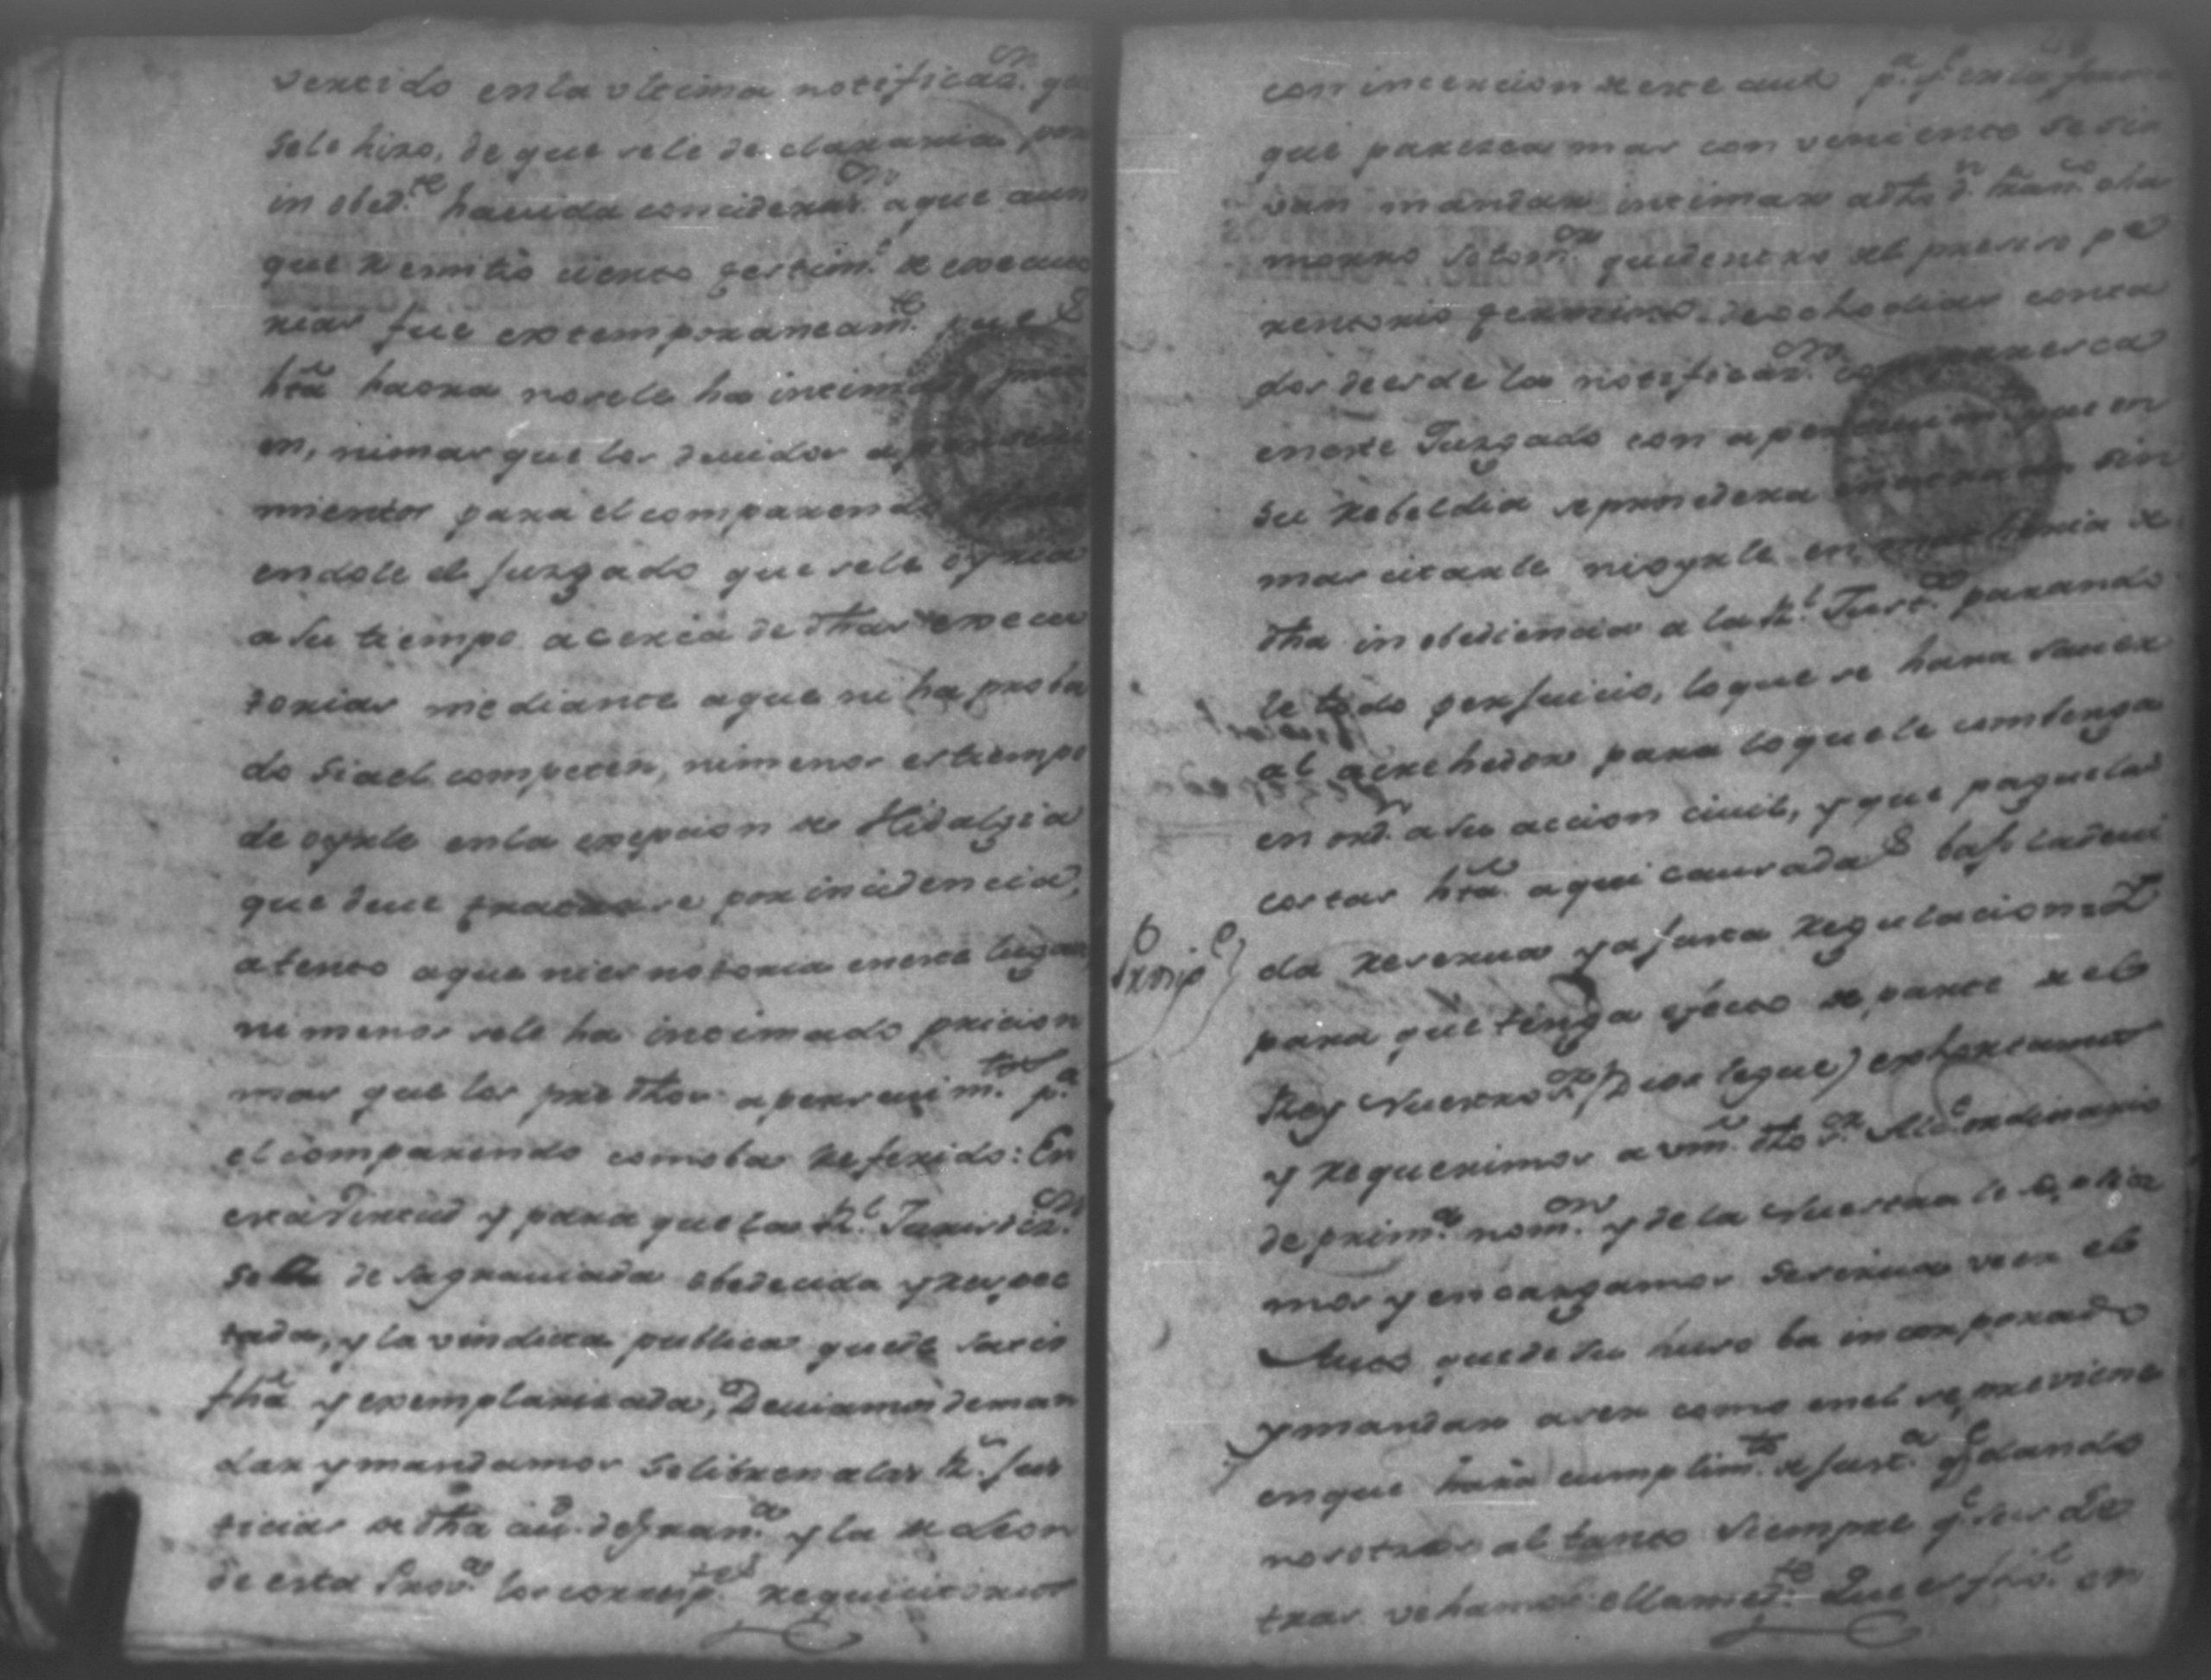 vertido en la vltima notificaz.on que
se le hizo, de que se le declararia por
in obed.te havida concideraz.on a que aun
que remitio ciento testim.o de executo
rias fue extemporaneam.te pues
hta haora no se le ha intimado prici
on, ni mas que los devidos apercevi
mientos para el comparendo
endole el Juzgado que se le oyria
a su tiempo acerca de dhas execu
torias mediante a que ni ha proba
do si a el competen, ni menos es tiempo
de oyrle en la exepcion de Hidalgia
que deve tratarse por incidencia,
atento a que ni es notoria en este lugar,
ni menos se le ha intimado pricion
mas que los predhos apercevim.tos p.a
el comparendo como ba referido: En
esta virtud y para que la R.l Jurisdiz.on
sea desagraviada obedecida y respec
tada, y la vindicta publica quede satis
fha y exemplarisada, Deviamos deman
dar y mandamos se libren a las R.s Jus
ticias de dha ciu.d de Gran.a y la de Leon
de esta Prov.a los corresp.tes requicitorios
con incercion de este auto p.a q.e en la forma
que paresca mas conveniente se sir
van mandar intimar a dho d.n Fran.co cha
morro Sotom.or que dentro del preciso pe
rentorio termino de ocho dias conta
dos desde la notificaz.on comparesca
en este Juzgado con apercevim.to que en
su rebeldia se procedera sin
mas citarle ni oyrle en de
dha inobediencia a la R.l Just.a parando
le todo perjuicio, lo que se hara saver
al acrehedor para lo que le combenga
en ord.n a su accion civil, y que pague las
costas hta aqui causadas bajo la devi
da reserva y a justa regulacion
Prosig.e
para que tenga efecto de parte de el
Rey Nuestro S.or (Dios le gue) exhortamos
y requerimos a vm. dho S.or Alc.e ordinario
de prim.a nom.on y de la Nuestra le
mos y encargamos se sirva veer el
Auto que de su huso ba incorporado
y mandar aser como en el se previene
en que hara cumplim.to de just.a q.e dando
nosotros al tanto siempre q.e sus Le
tras vehamos ella med.te Que es fho en